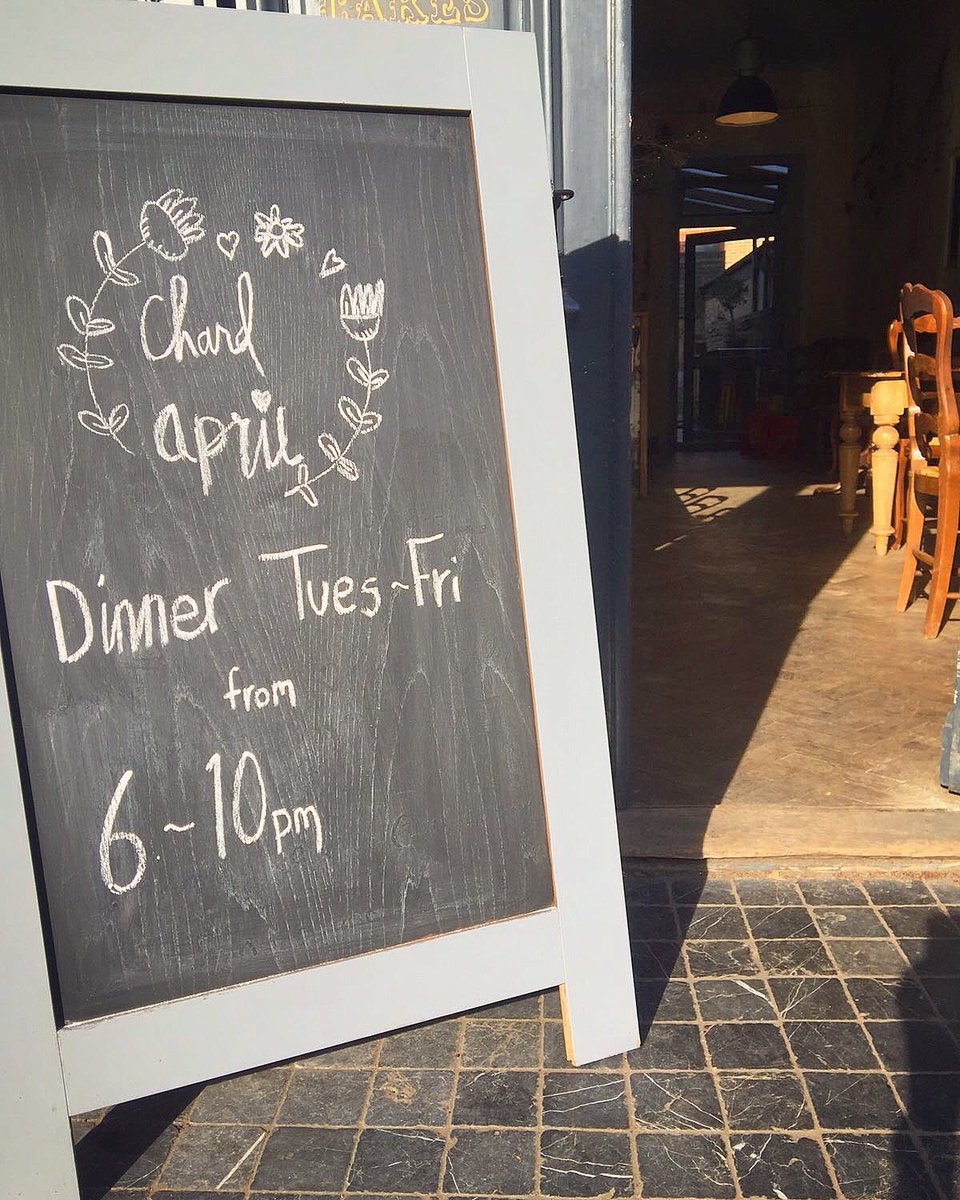 CAKES
Chard
april
Dinner Tues~Fri
from
6~10pm